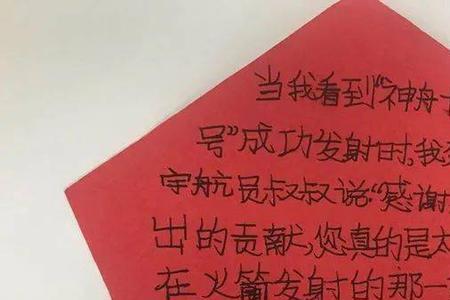 当我看到“神舟十
号”成功发射时,我
宇航员叔叔说:“感谢
出的贡献,您真的是太
在火箭发射的那一